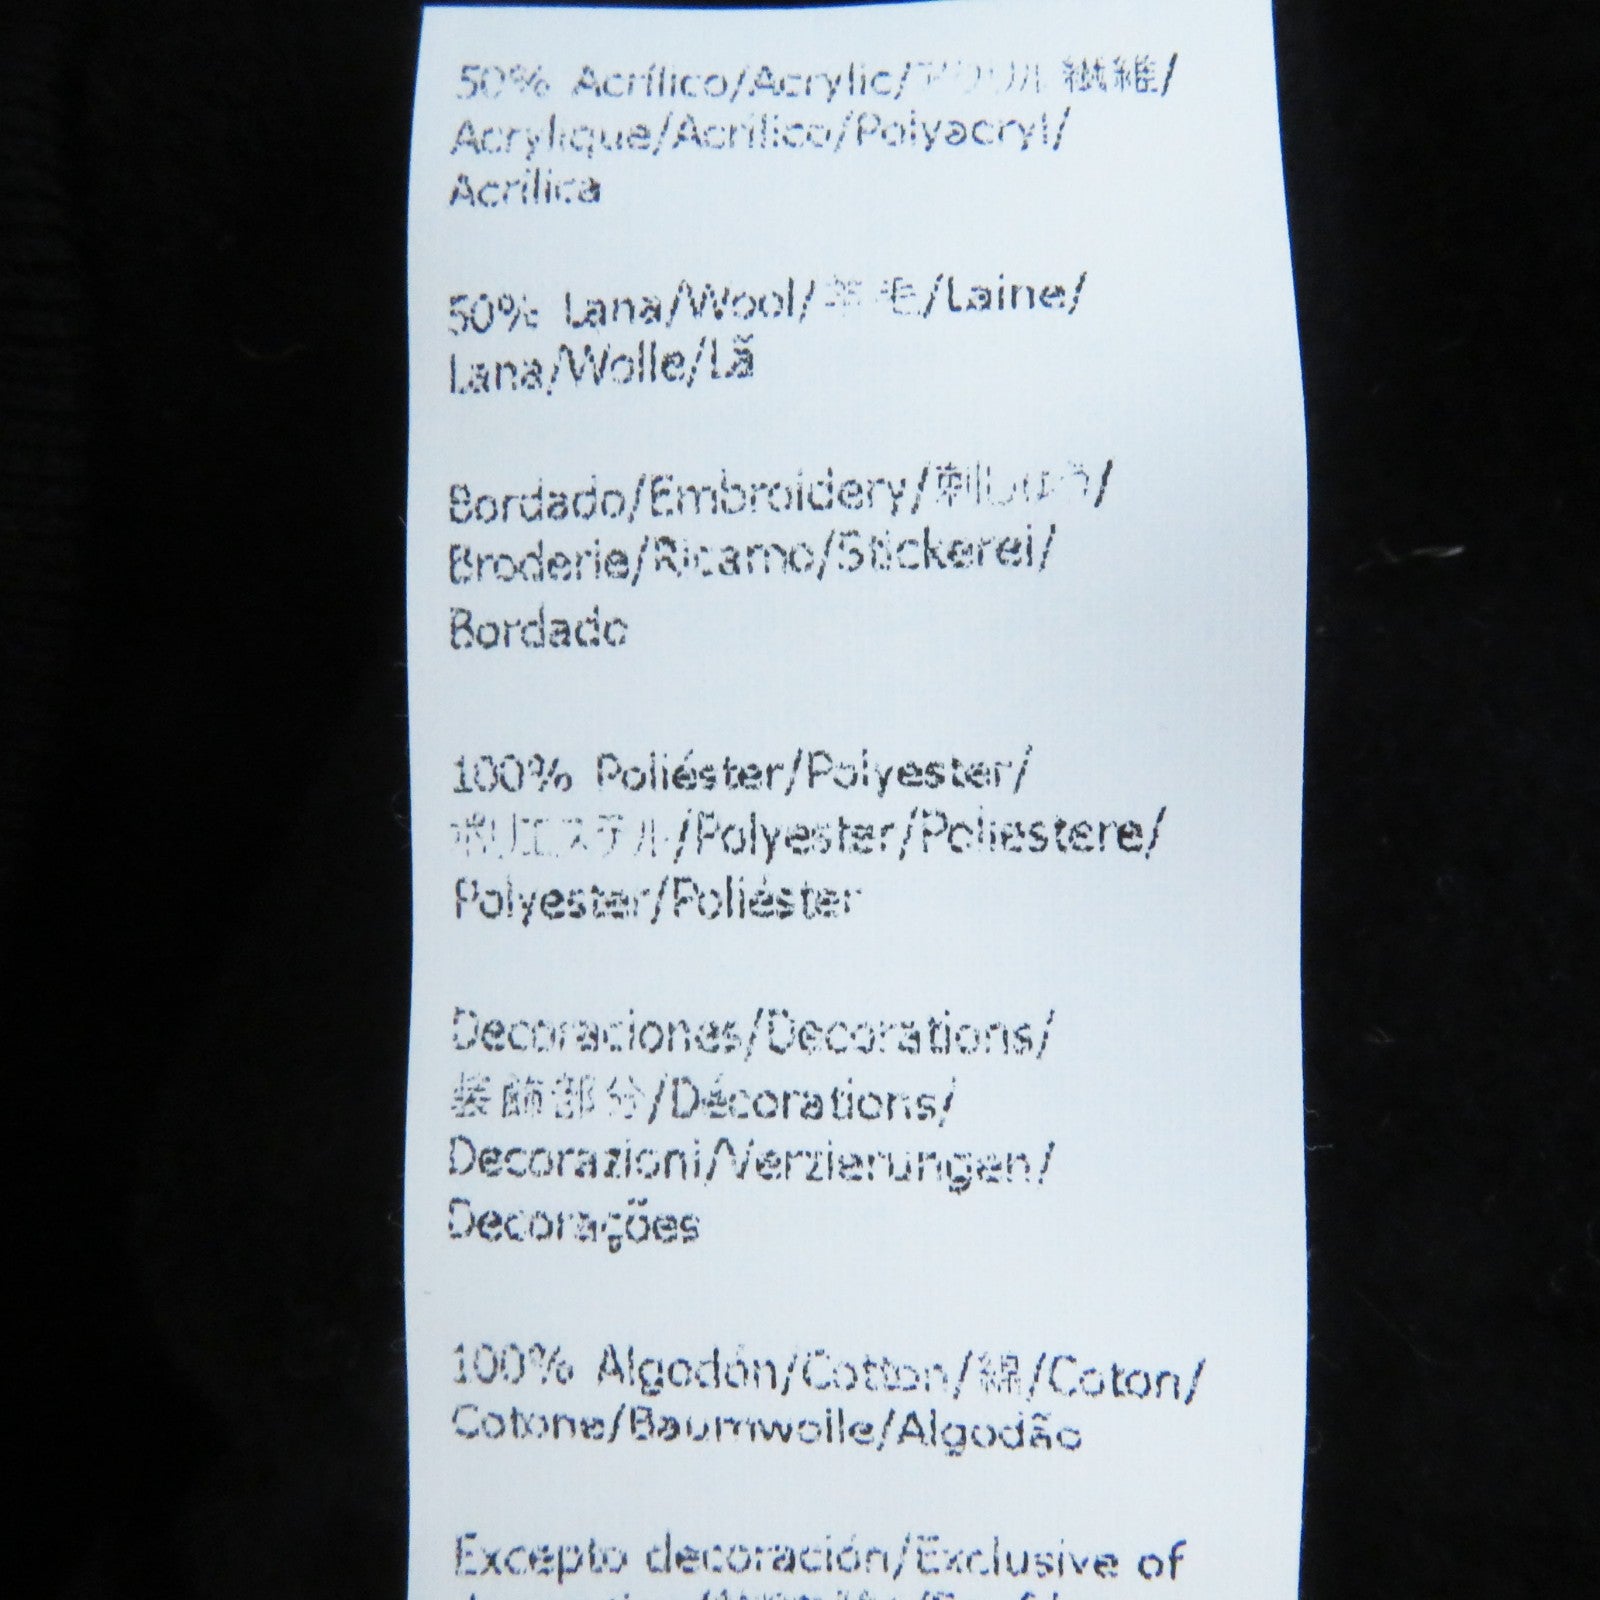 50% Acrílico/Acrylic/アクリル繊維/
Acrylique/Acrilico/Polyacryl/
Acrílica
50% Lana/Wool/羊毛/Laine/
Lana/Wolle/Lã
Bordado/Embroidery/刺しゅう/
Broderie/Ricamo/Stickerei/
Bordado
100% Poliéster/Polyester/
ポリエステル/Polyester/Poliestere/
Polyester/Poliéster
Decoraciones/Decorations/
装飾部分/Décorations/
Decorazioni/Verzierungen/
Decorações
100% Algodón/Cotton/綿/Coton/
Cotone/Baumwolle/Algodão
Excepto decoración/Exclusive of